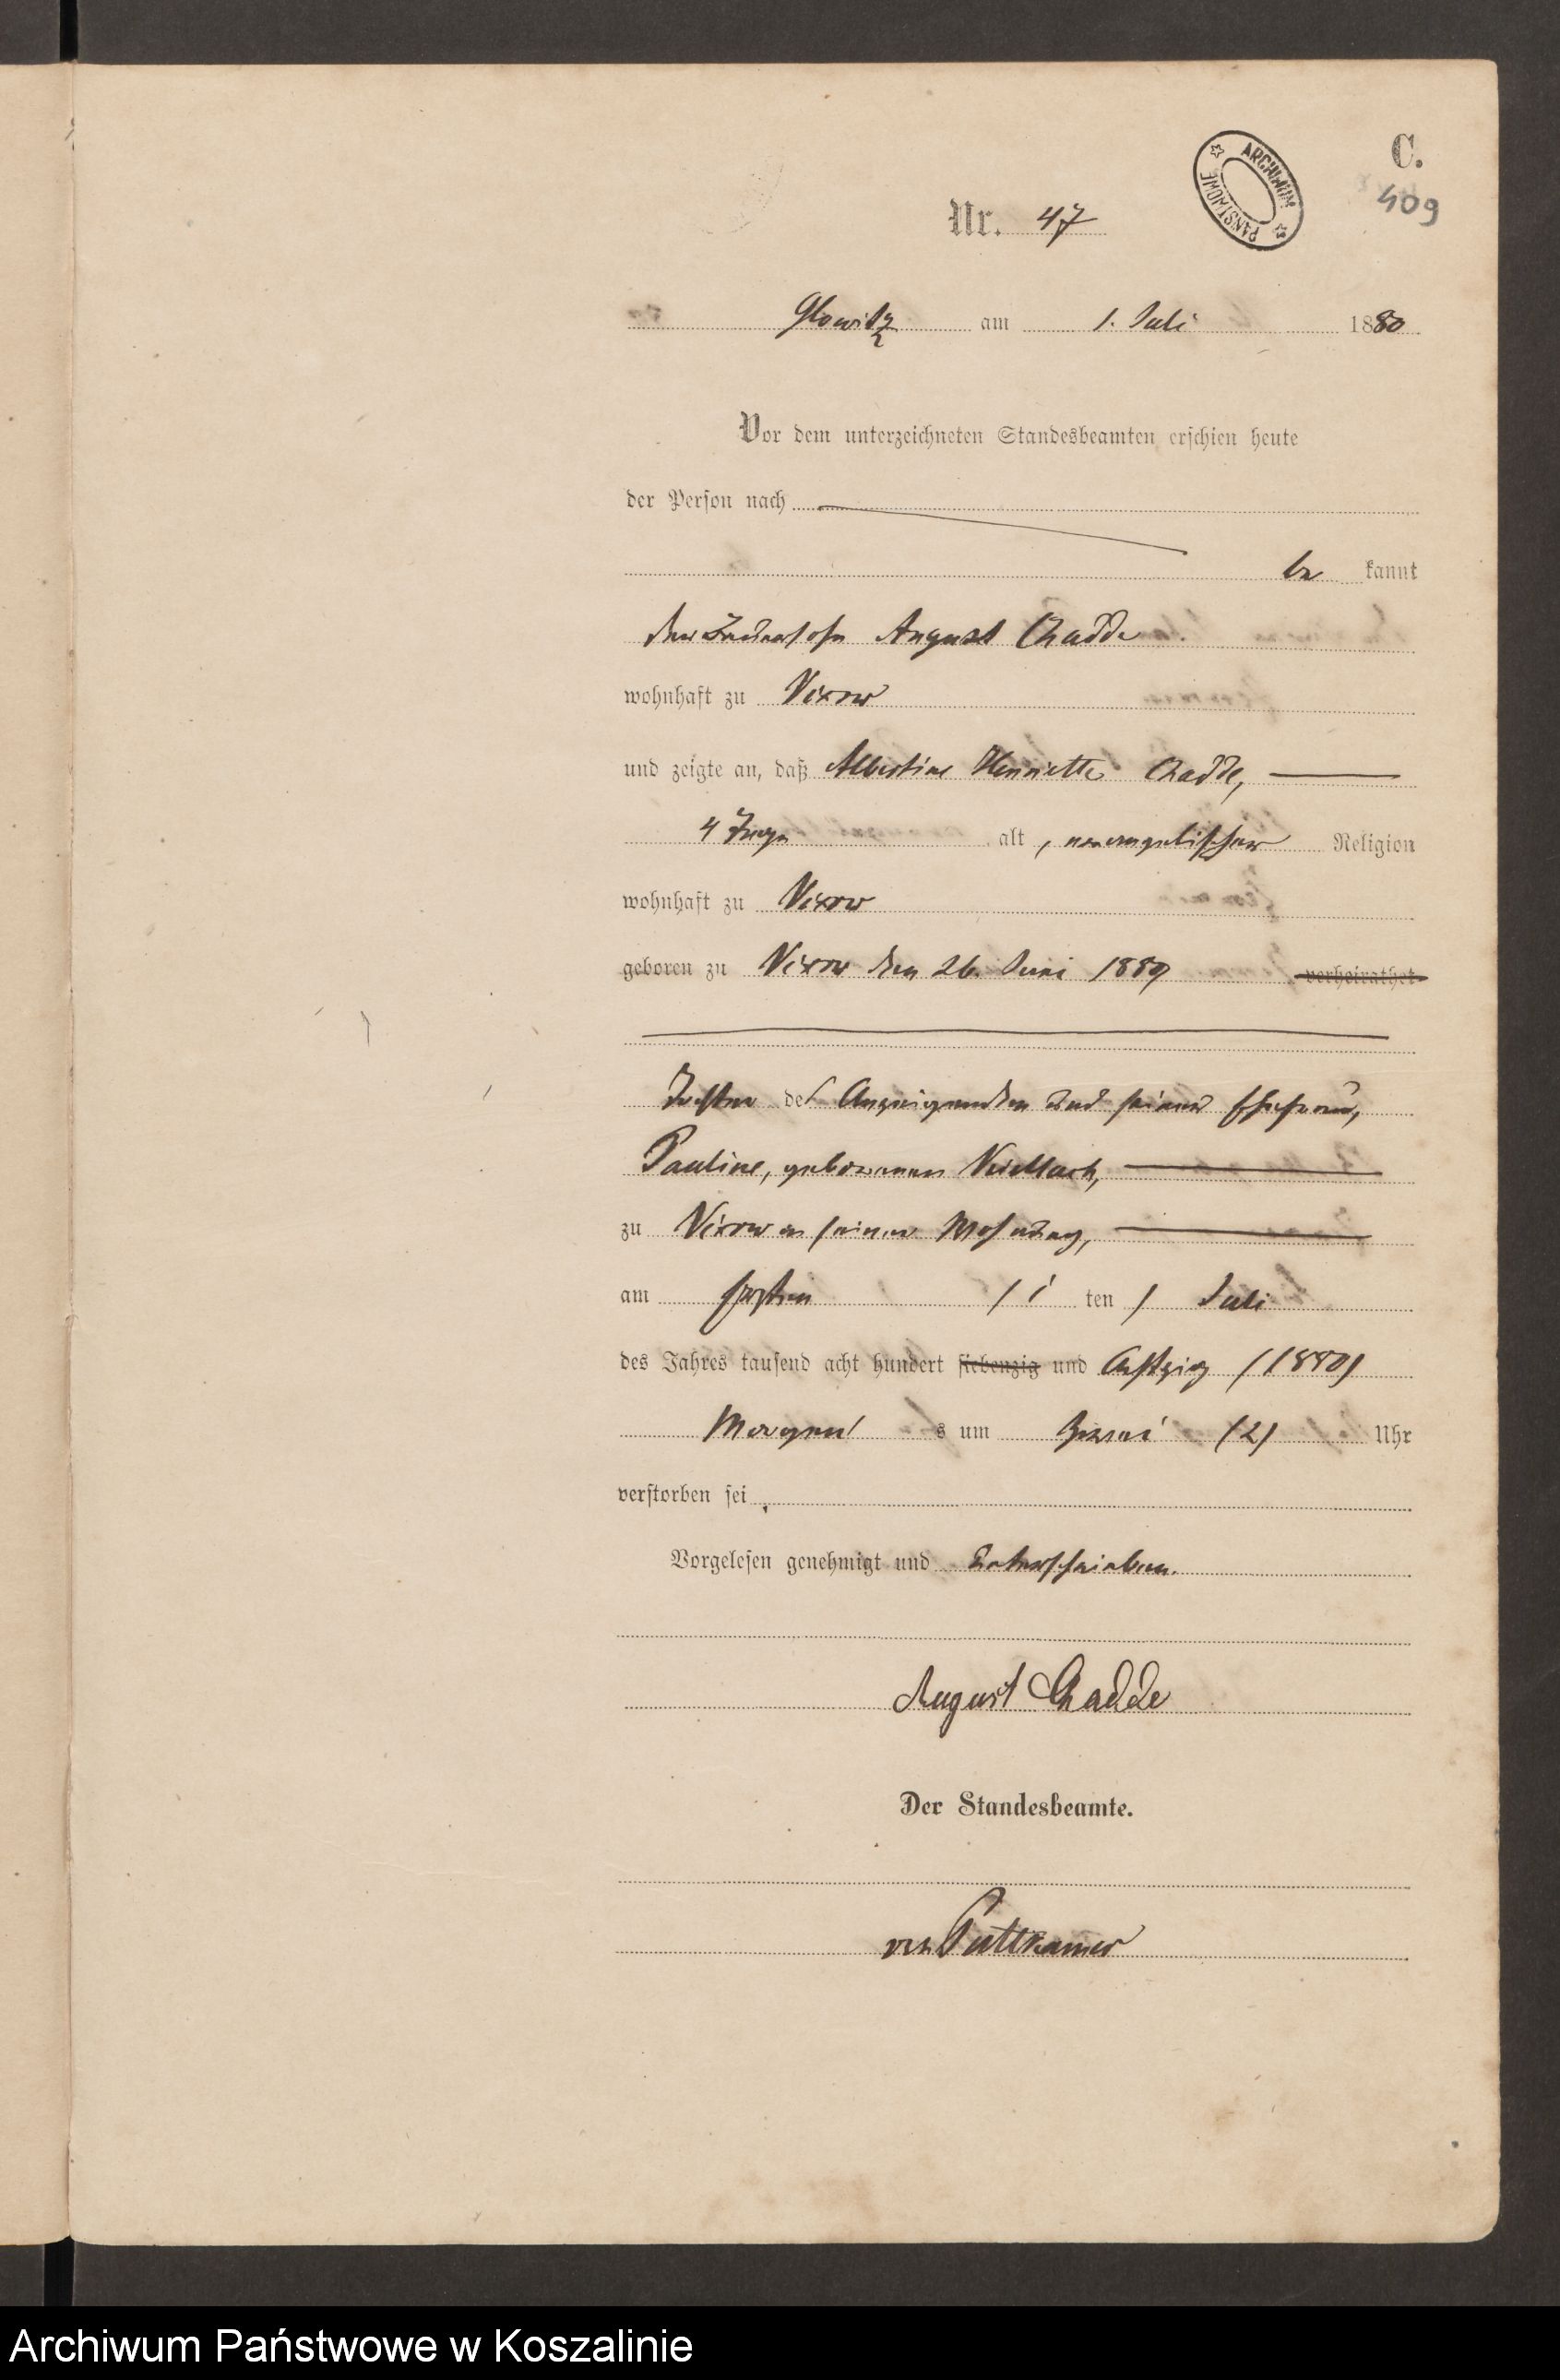 C.
409
ARCHIWUM PAŃSTWOWE
Nr. 47
Glowitz am 1. Juli 1880
Vor dem unterzeichneten Standesbeamten erschien heute
der Person nach
be kannt
der August Gadde
wohnhaft zu Vixow
und zeigte an, daß Albertine Henriette Gadde,
4 Tage alt, evangelischer Religion
wohnhaft zu Vixow
geboren zu Vixow den 26. Juni 1880 verheirathet
Tochter des Anzeigenden und seiner Ehefrau,
Pauline, geborenen
zu Vixow in seiner Wohnung,
am Ersten (1 ten) Juli
des Jahres tausend acht hundert siebenzig und Achtzig (1880)
Morgens um Zwei (2) Uhr
verstorben sei.
Vorgelesen genehmigt und unterschrieben.
August Gadde
Der Standesbeamte.
von Puttkamer
Archiwum Państwowe w Koszalinie